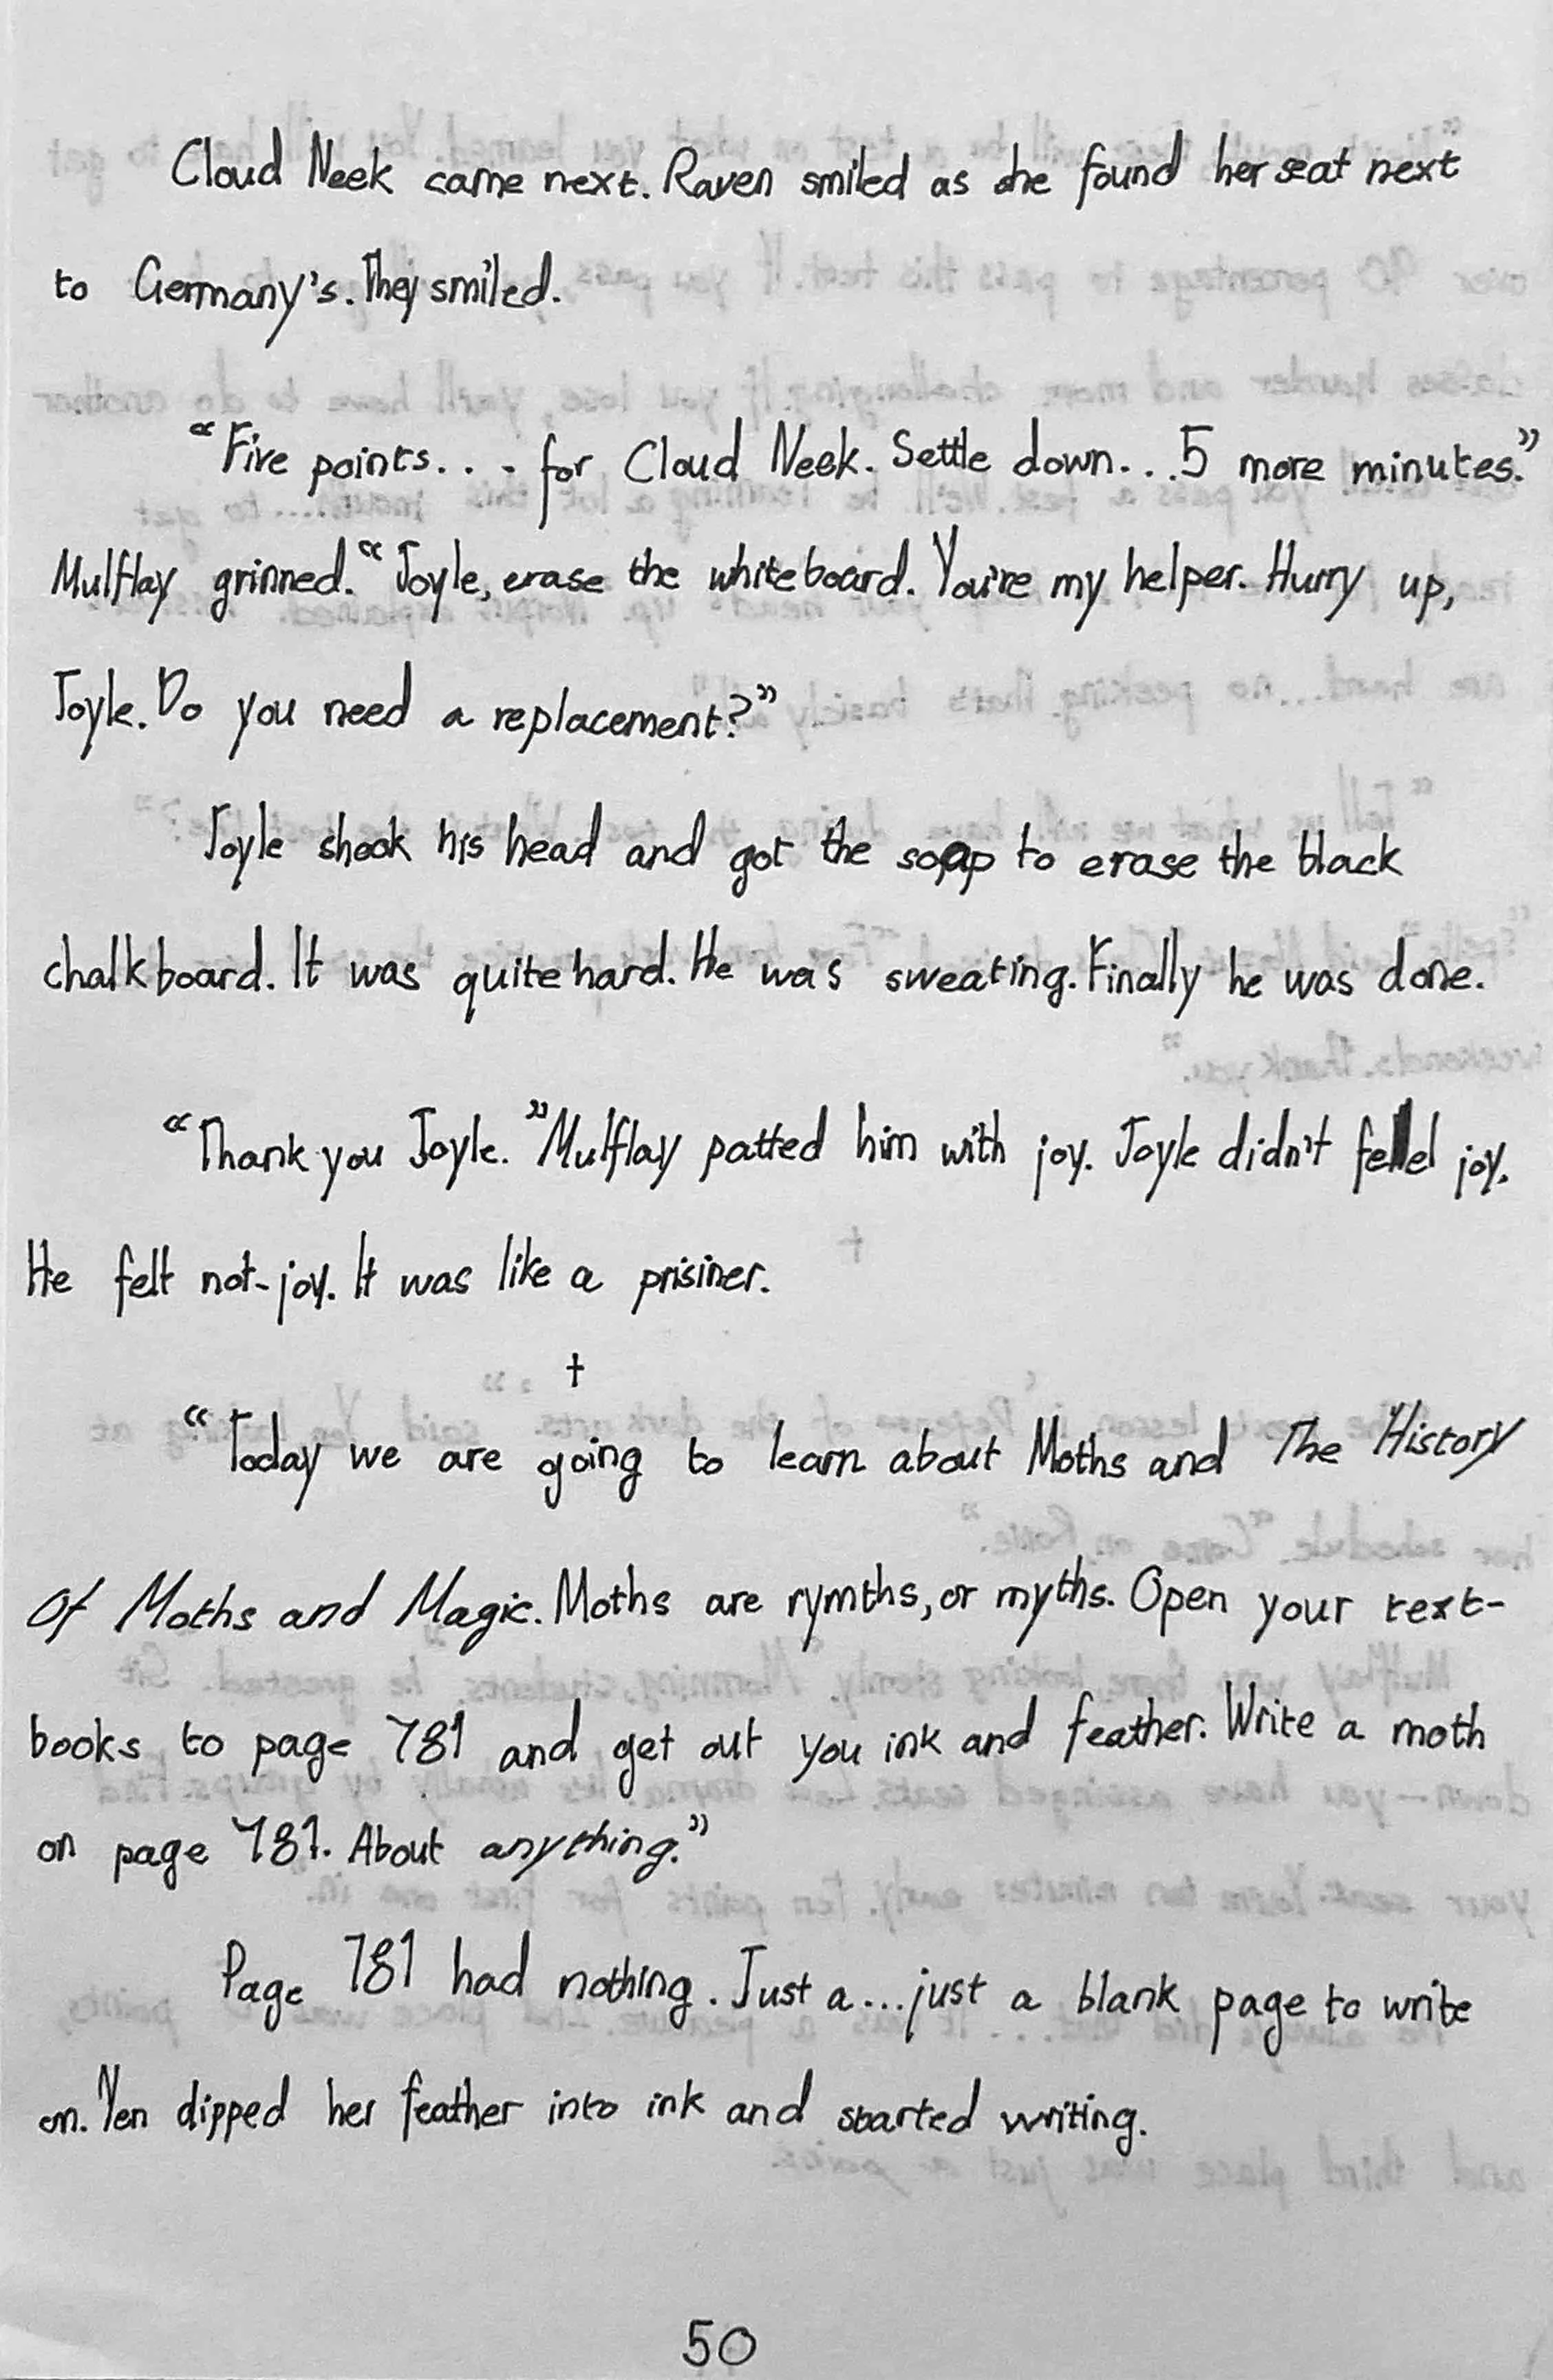 Cloud Neek came next. Raven smiled as she found her seat next
to Germany's. They smiled.
“Five points... - for Cloud Neek. Settle down...5 more minutes.”
Mulflay grinned. “Joyle, erase the whiteboard. You're my helper. Hurry up,
Joyle. Do you need a replacement?”
Joyle shook his head and got the soap to erase the black
chalkboard. It was quite hard. He was sweating. Finally he was done.
“Thank you Joyle.” Mulflay patted him with joy. Joyle didn't feel joy.
He felt not-joy. It was like a prisiner.
†
“Today we are going to learn about Moths and The History
Of Moths and Magic. Moths are rymths, or myths. Open your text-
books to page 781 and get out you ink and feather. Write a moth
on page 781. About anything.”
Page 781 had nothing. Just a...just a blank page to write
on. Yen dipped her feather into ink and started writing.
50